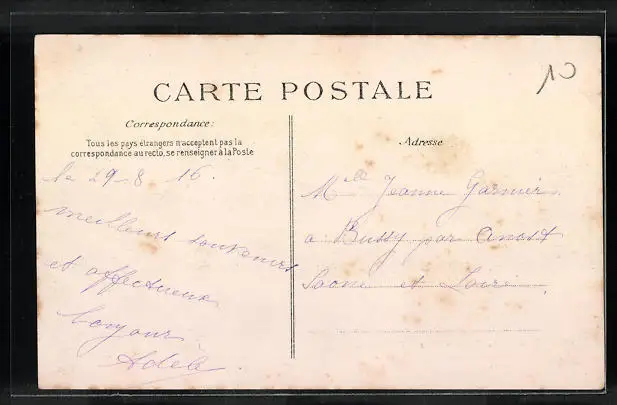 10
CARTE POSTALE
Correspondance:
Tous les pays étrangers n'acceptent pas la
correspondance au recto, se renseigner à la Poste
Adresse
le 29-8 16.
meilleurs souvenirs
et affectueux
bonjour
Adèle.
Mlle Jeanne Garnier
a Bussy par Anost
Saone et Loire